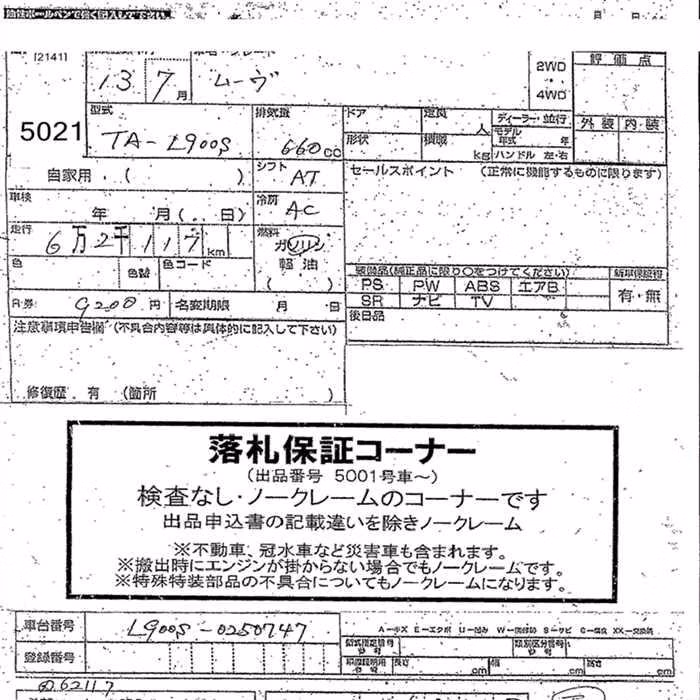 油性ボールペンで強く記入して下さい。 月 日
[2141]
13 7月 ムーヴ 2WD 4WD 評価点
5021
型式 TA-L900S 排気量 660cc ドア 定員 人 ディーラー・並行
形状 積載 kg モデル年式 年 ハンドル 左・右 外装 内・装
自家用・( ) シフト AT セールスポイント (正常に機能するものに限ります)
車検 年 月(・・日) 冷房 AC
走行 6万2千117km 燃料 ガソリン 軽油 ( )
色 色替 色コード
装備品(純正品に限り○をつけてください) 新車保証書
PS PW ABS エアB 有・無
SR ナビ TV
R券 9200円 名変期限 月 日 後日品
注意事項申告欄 (不具合内容等は具体的に記入して下さい)
修復歴 有 (箇所 )
落札保証コーナー
(出品番号 5001号車~)
検査なし・ノークレームのコーナーです
出品申込書の記載違いを除きノークレーム
※不動車、冠水車など災害車も含まれます。
※搬出時にエンジンが掛からない場合でもノークレームです。
※特殊特装部品の不具合についてもノークレームになります。
車台番号 L900S-0250747
登録番号
型式指定番号 類別区分番号
長さ cm 幅 cm 高さ cm
62117